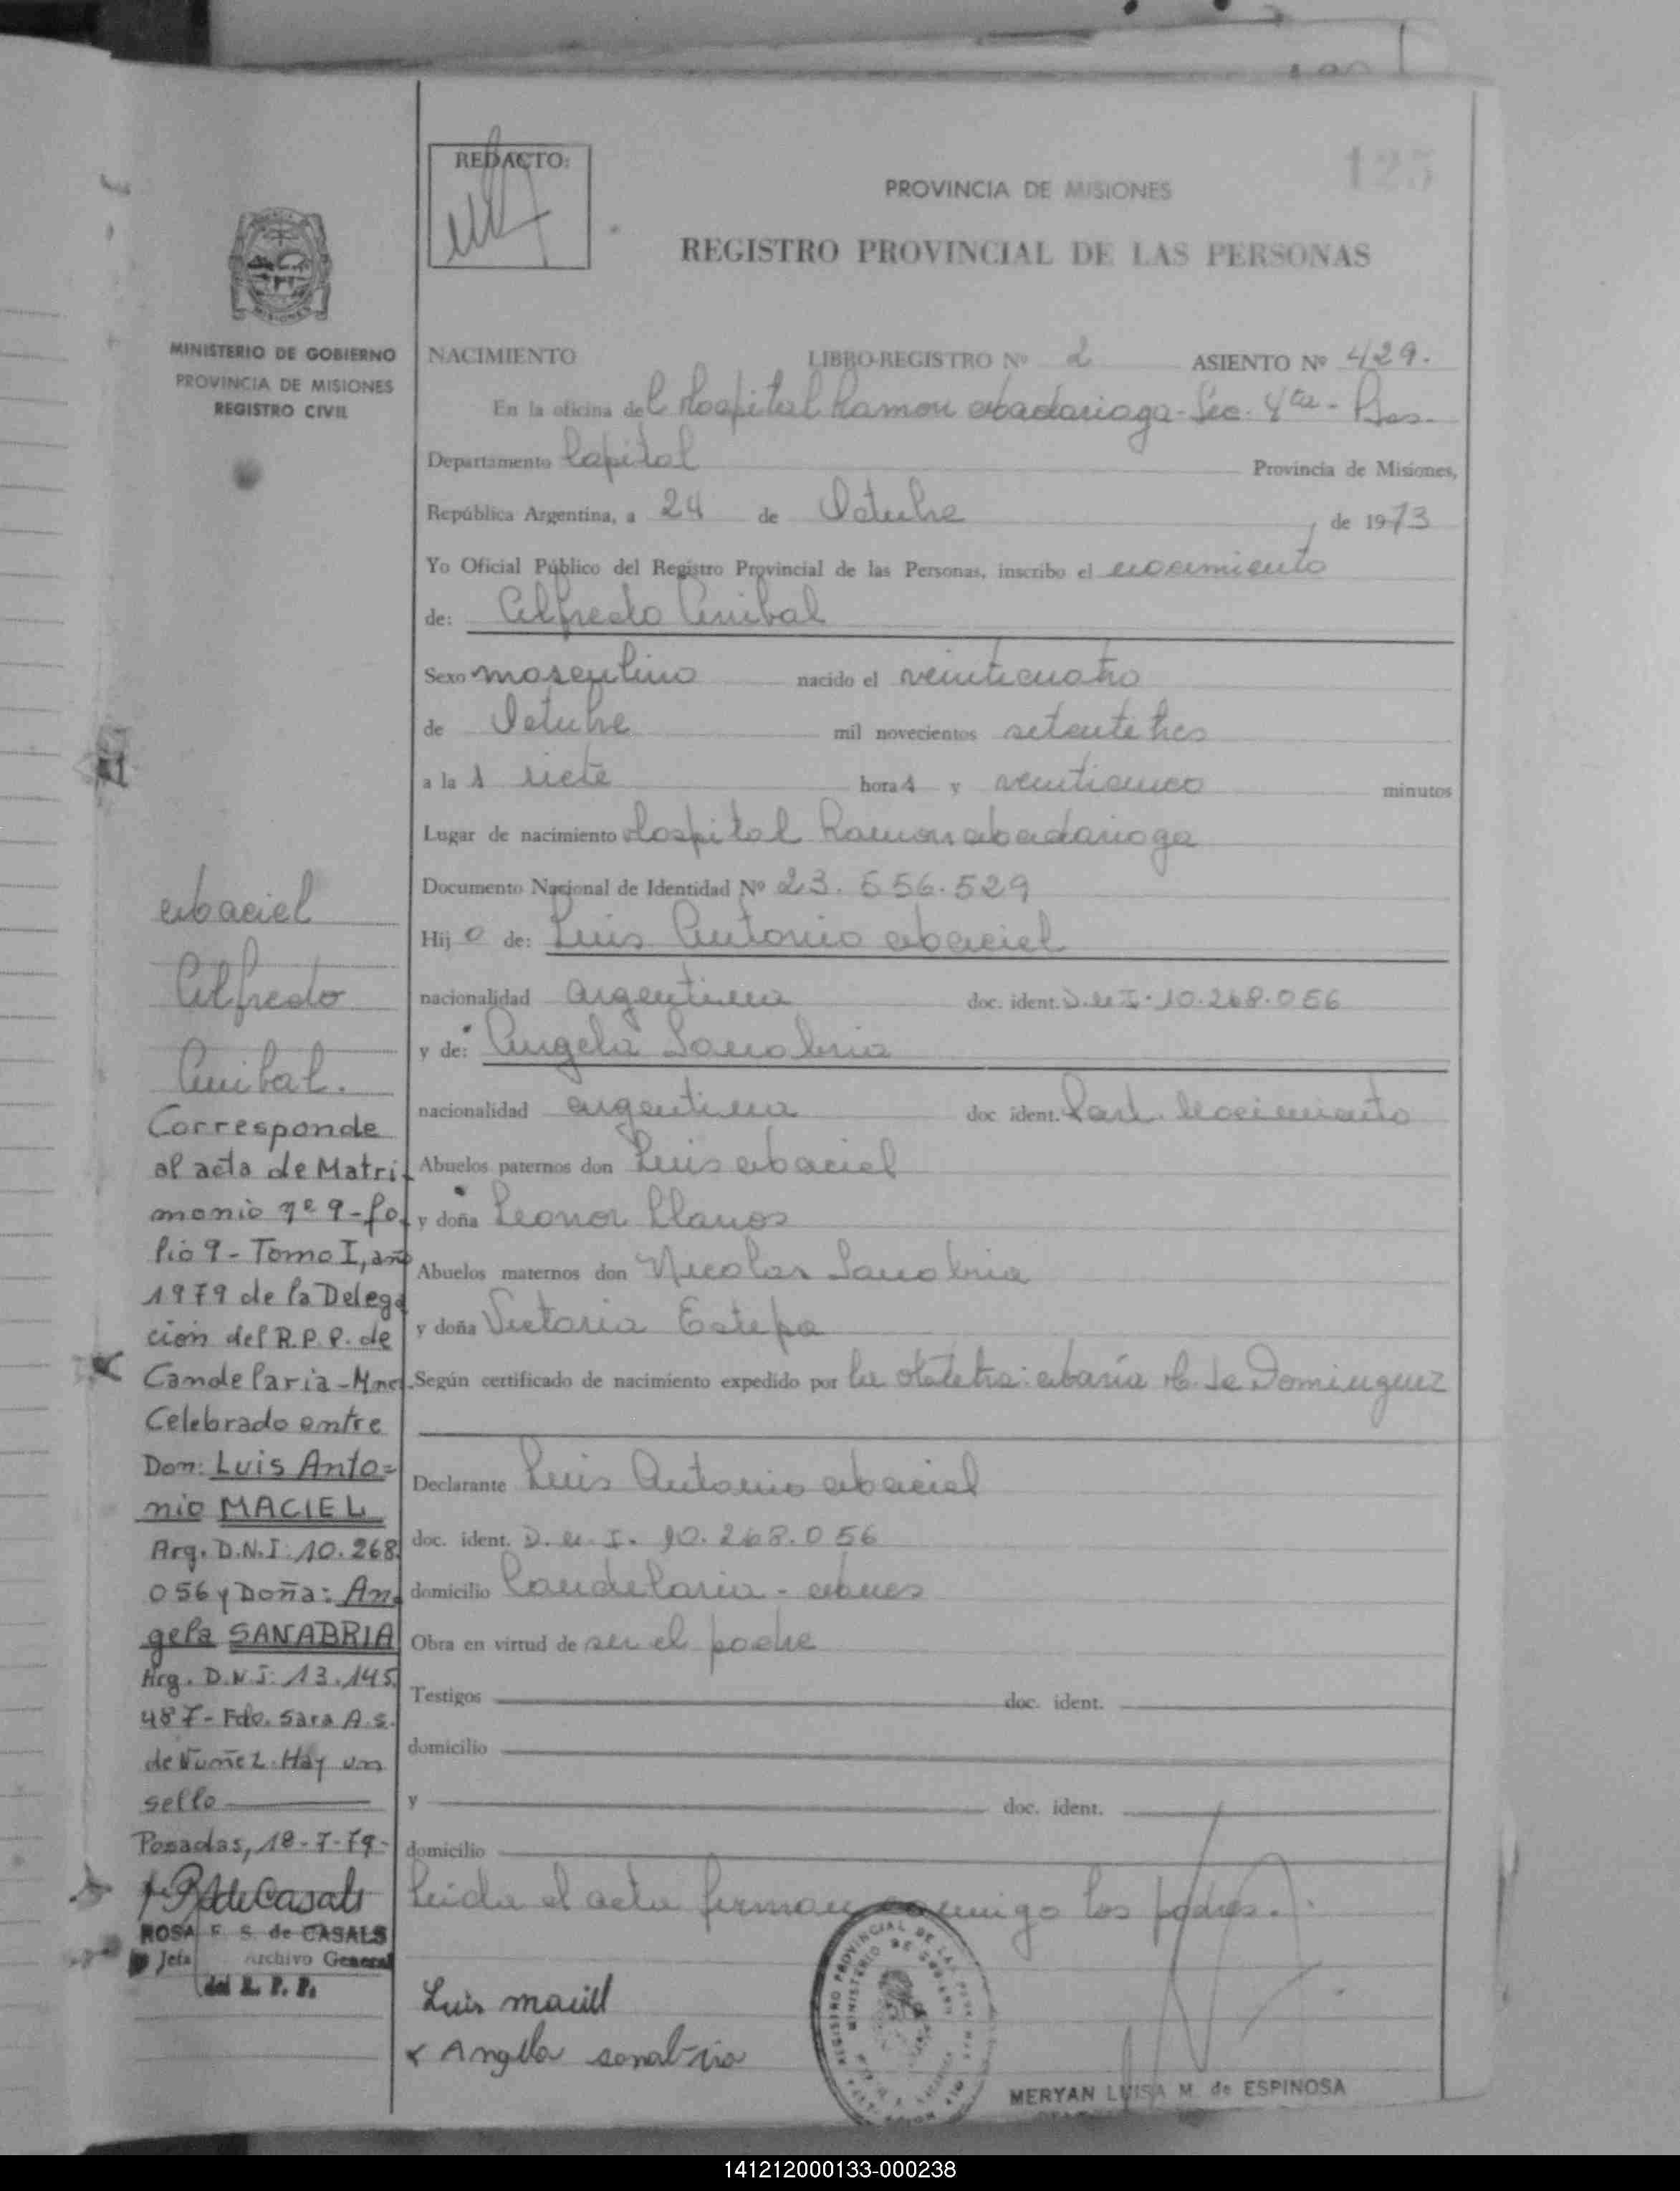 125
REDACTO:
PROVINCIA DE MISIONES
REGISTRO PROVINCIAL DE LAS PERSONAS
MINISTERIO DE GOBIERNO
PROVINCIA DE MISIONES
REGISTRO CIVIL
NACIMIENTO LIBRO-REGISTRO Nº 2 ASIENTO Nº 429.
En la oficina del Hospital Ramon Madariaga - Sec. 4ta - Pdas.
Departamento Capital Provincia de Misiones,
República Argentina, a 24 de Octubre, de 1973
Yo Oficial Público del Registro Provincial de las Personas, inscribo el nacimiento
de: Alfredo Anibal
Sexo masculino nacido el veinticuatro
de Octubre mil novecientos setentitres
a las siete horas y veinticinco minutos
Lugar de nacimiento Hospital Ramon Madariaga
Documento Nacional de Identidad Nº 23.556.529
Hijo de: Luis Antonio Maciel
nacionalidad argentina doc. ident. D.N.I. 10.268.056
y de: Angela Sanabria
nacionalidad argentina doc ident. Part. Nacimiento
Abuelos paternos don Luis Maciel
y doña Leonor Llanos
Abuelos maternos don Nicolas Sanabria
y doña Victoria Estepa
Según certificado de nacimiento expedido por la obstetra: María H. de Dominguez
Declarante Luis Antonio Maciel
doc. ident. D.N.I. 10.268.056
domicilio Candelaria - Mnes
Obra en virtud de ser el padre
Testigos doc. ident.
domicilio
y doc. ident.
domicilio
Leida el acta firman conmigo los padres.
Luis maciel
x Angela sanabria
REGISTRO PROVINCIAL DE LAS PERSONAS
MINISTERIO DE GOBIERNO
MERYAN LUISA M. de ESPINOSA
Maciel
Alfredo
Anibal.
Corresponde
al acta de Matri-
monio nº 9 - fo-
lio 9 - Tomo I, año
1979 de la Delega
cion del R.P.P. de
Candelaria - Mnes.
Celebrado entre
Don: Luis Anto=
nio MACIEL
Arg. D.N.I: 10.268.
056 y Doña: An-
gela SANABRIA
Arg. D.N.I: 13.145.
487 - Fdo. Sara A.S.
de Nuñez. Hay un
sello
Posadas, 18-7-79-
ROSA F. S. de CASALS
Jefa Archivo General
del R. P. P.
141212000133-000238